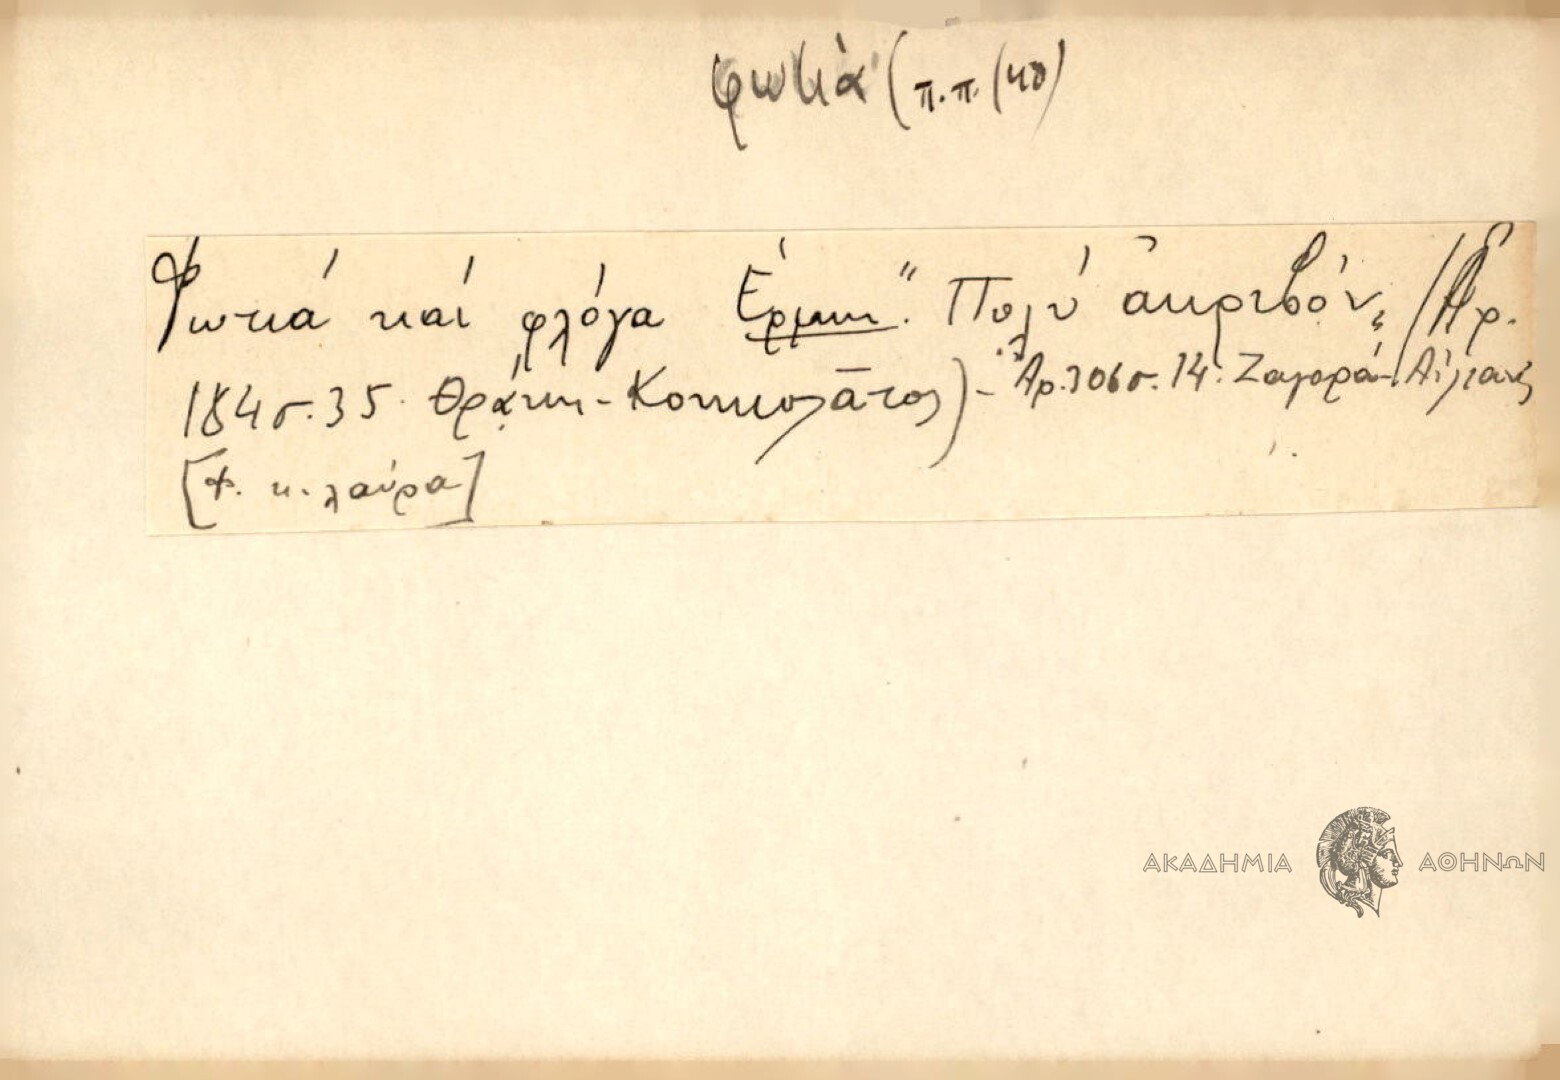 φωτιὰ (π.π. (40)
Φωτιά καί φλόγα Ἑρμην. "Πολύ ἀκριβόν„ (Ἀρ.
184 σ. 35. Θράκη - Κουκκουλᾶτος) - Ἀρ. 306 σ. 14. Ζαγορά -
[Φ. κ. λαύρα]
ΑΚΑΔΗΜΙΑ ΑΘΗΝΩΝ